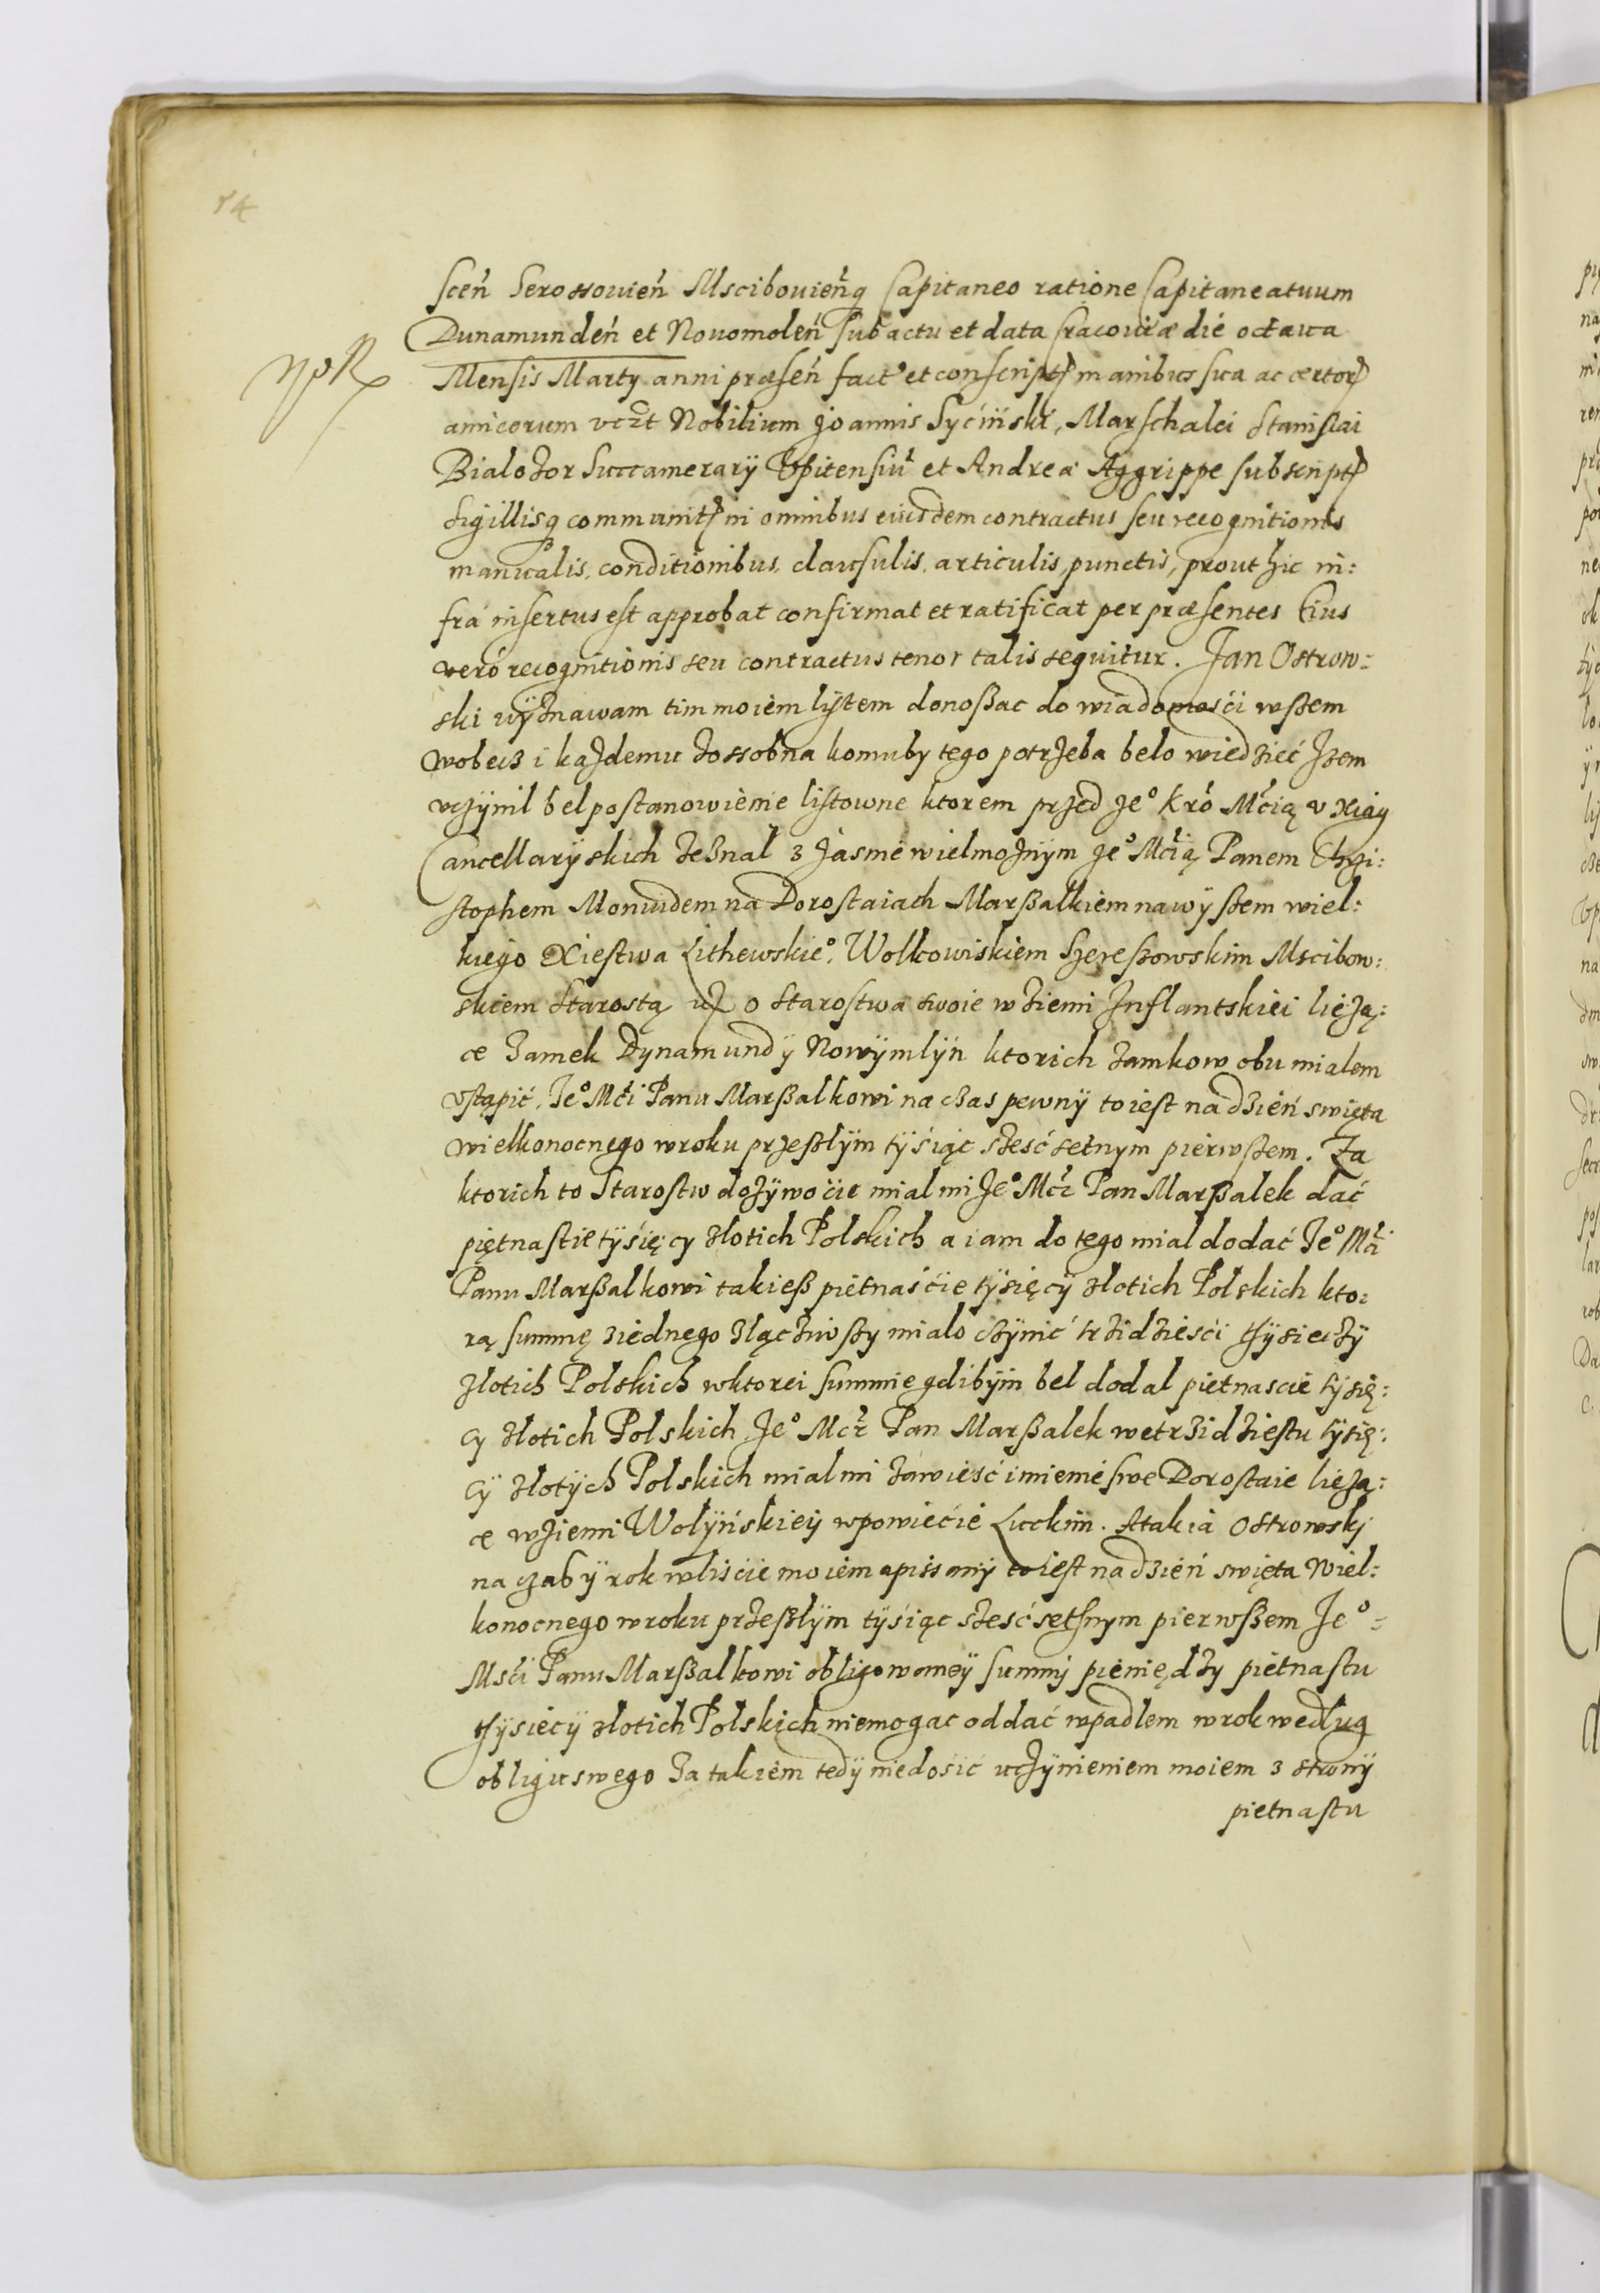 sceń Serossowień Mscibowieńq Capitaneo ratione Capitaneatuum
Dunamundeń et Nouomoleń sub actu et data Cracoviæ die octaua
Mensis Martÿ anni præseń fact' et conscript manibus sua ac cærtor
amicorum vczt Nobilium Joannis Syciński, Marschalci Stanislai
Bialozor Succamerarÿ Vpitensiu et Andreæ Aggrippe subscript
sigillisq communit in omnibus eiusdem contractus seu recognitionis
manualis, conditionibus, clausulis, articulis, punctis, prout hic in:
fra insertus est approbat confirmat et ratificat per præsentes Eius
vero recognitionis seu contractus tenor talis sequitur. Jan Ostrow:
ski wÿznawam tim moiem lÿstem donoßac do wiadomośći wßem
wobecz i każdemu zossobna komuby tego potrzeba belo wiedzieć Jzem
vczÿnil bel postanowienie listowne ktorem przed Je° Kró Mćią v Xiąg
Cancellarÿskich zeznal z Jasnie wielmożnÿm Je° Mćią Panem Chrzi:
stophem Monwidem na Dorostaiach Marßalkiem nawÿßem wiel:
kiego Xiestwa Lithewskie°, Wolkowiskiem Szereßowskim Mscibow:
skiem Starostą iż o starostwa swoie w ziemi Jnflantskiei lieżą:
ce Zamek Dynamundÿ Nowÿmlÿn ktorich zamkow obu mialem
vstąpić, Je° Mći Panu Marßalkowi na czas pewnÿ to iest na dzień swięta
wielkonocnego w roku przeßlÿm tÿśiąc sześćsetnym pierwßem. Za
ktorich to Starostw dożÿwocie mial mi Je° Mćz Pan Marßalek dać
piętnastie tÿśięcy złotich Polskich a iam do tego mial dodać Je° Mći
Panu Marßalkowi takieß pietnaśćie tÿsięcÿ złotich Polskich kto:
rą summę ziednego złączwßy mialo czÿnić trzidzieśći tÿsieczÿ
złotich Polskich w ktorei summie gdibÿm bel dodal pietnascie tÿsię:
cy złotich Polskich Je° Mćz Pan Marßalek we trzidziestu tÿsię:
cÿ złotÿch Polskich mial mi zawieść imienie swe Dorostaie lieżą:
ce w ziemi Wolÿńskieÿ w powiećie Luckim. A tak ia Ostrowskj
na czas ÿ rok w lisćie moiem opissanÿ to iest na dzień swięta Wiel:
konocnego w roku przeßlÿm tÿśiąc sześćsethnym pierwßem Je°
Mśći Panu Marßalkowi obligowaneÿ summj pieniędzy piętnastu
tÿsiecÿ złotich Polskich niemogac oddać wpadlem w rok według
obligu swego Za takiem tedÿ niedosić uczÿnieniem moiem z stronÿ
pietnastu